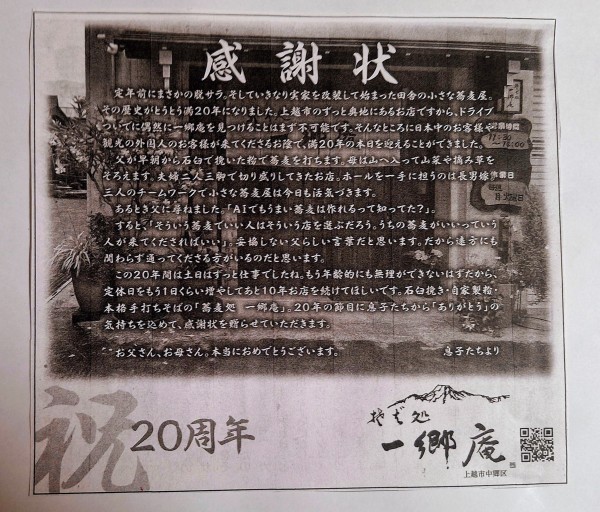 感謝状
定年前にまさかの脱サラ。そしていきなり実家を改装して始まった田舎の小さな蕎麦屋。
その歴史がとうとう満20年になりました。上越市のずっと奥地にあるお店ですから、ドライブ
ついでに偶然に一郷庵を見つけることはまず不可能です。そんなところに日本中のお客様や
観光の外国人のお客様が来てくださるお陰で、満20年の本日を迎えることができました。
父が早朝から石臼で挽いた粉で蕎麦を打ちます。母は山へ入って山菜や摘み草を
そろえます。夫婦二人三脚で切り盛りしてきたお店。ホールを一手に担うのは長男嫁。
三人のチームワークで小さな蕎麦屋は今日も活気づきます。
あるとき父に尋ねました。「AIでもうまい蕎麦は作れるって知ってた?」。
すると、「そういう蕎麦でいい人はそういう店を選ぶだろう。うちの蕎麦がいいっていう
人が来てくださればいい」。妥協しない父らしい言葉だと思います。だから遠方にも
関わらず通ってくださる方がいるのだと思います。
この20年間は土日はずっと仕事でしたね。もう年齢的にも無理ができないはずだから、
定休日をもう1日くらい増やしてあと10年お店を続けてほしいです。石臼挽き・自家製粉・
本格手打ちそばの「蕎麦処 一郷庵」。20年の節目に息子たちから「ありがとう」の
気持ちを込めて、感謝状を贈らせていただきます。
お父さん、お母さん。本当におめでとうございます。
息子たちより
祝
20周年
そば処
一郷庵
上越市中郷区